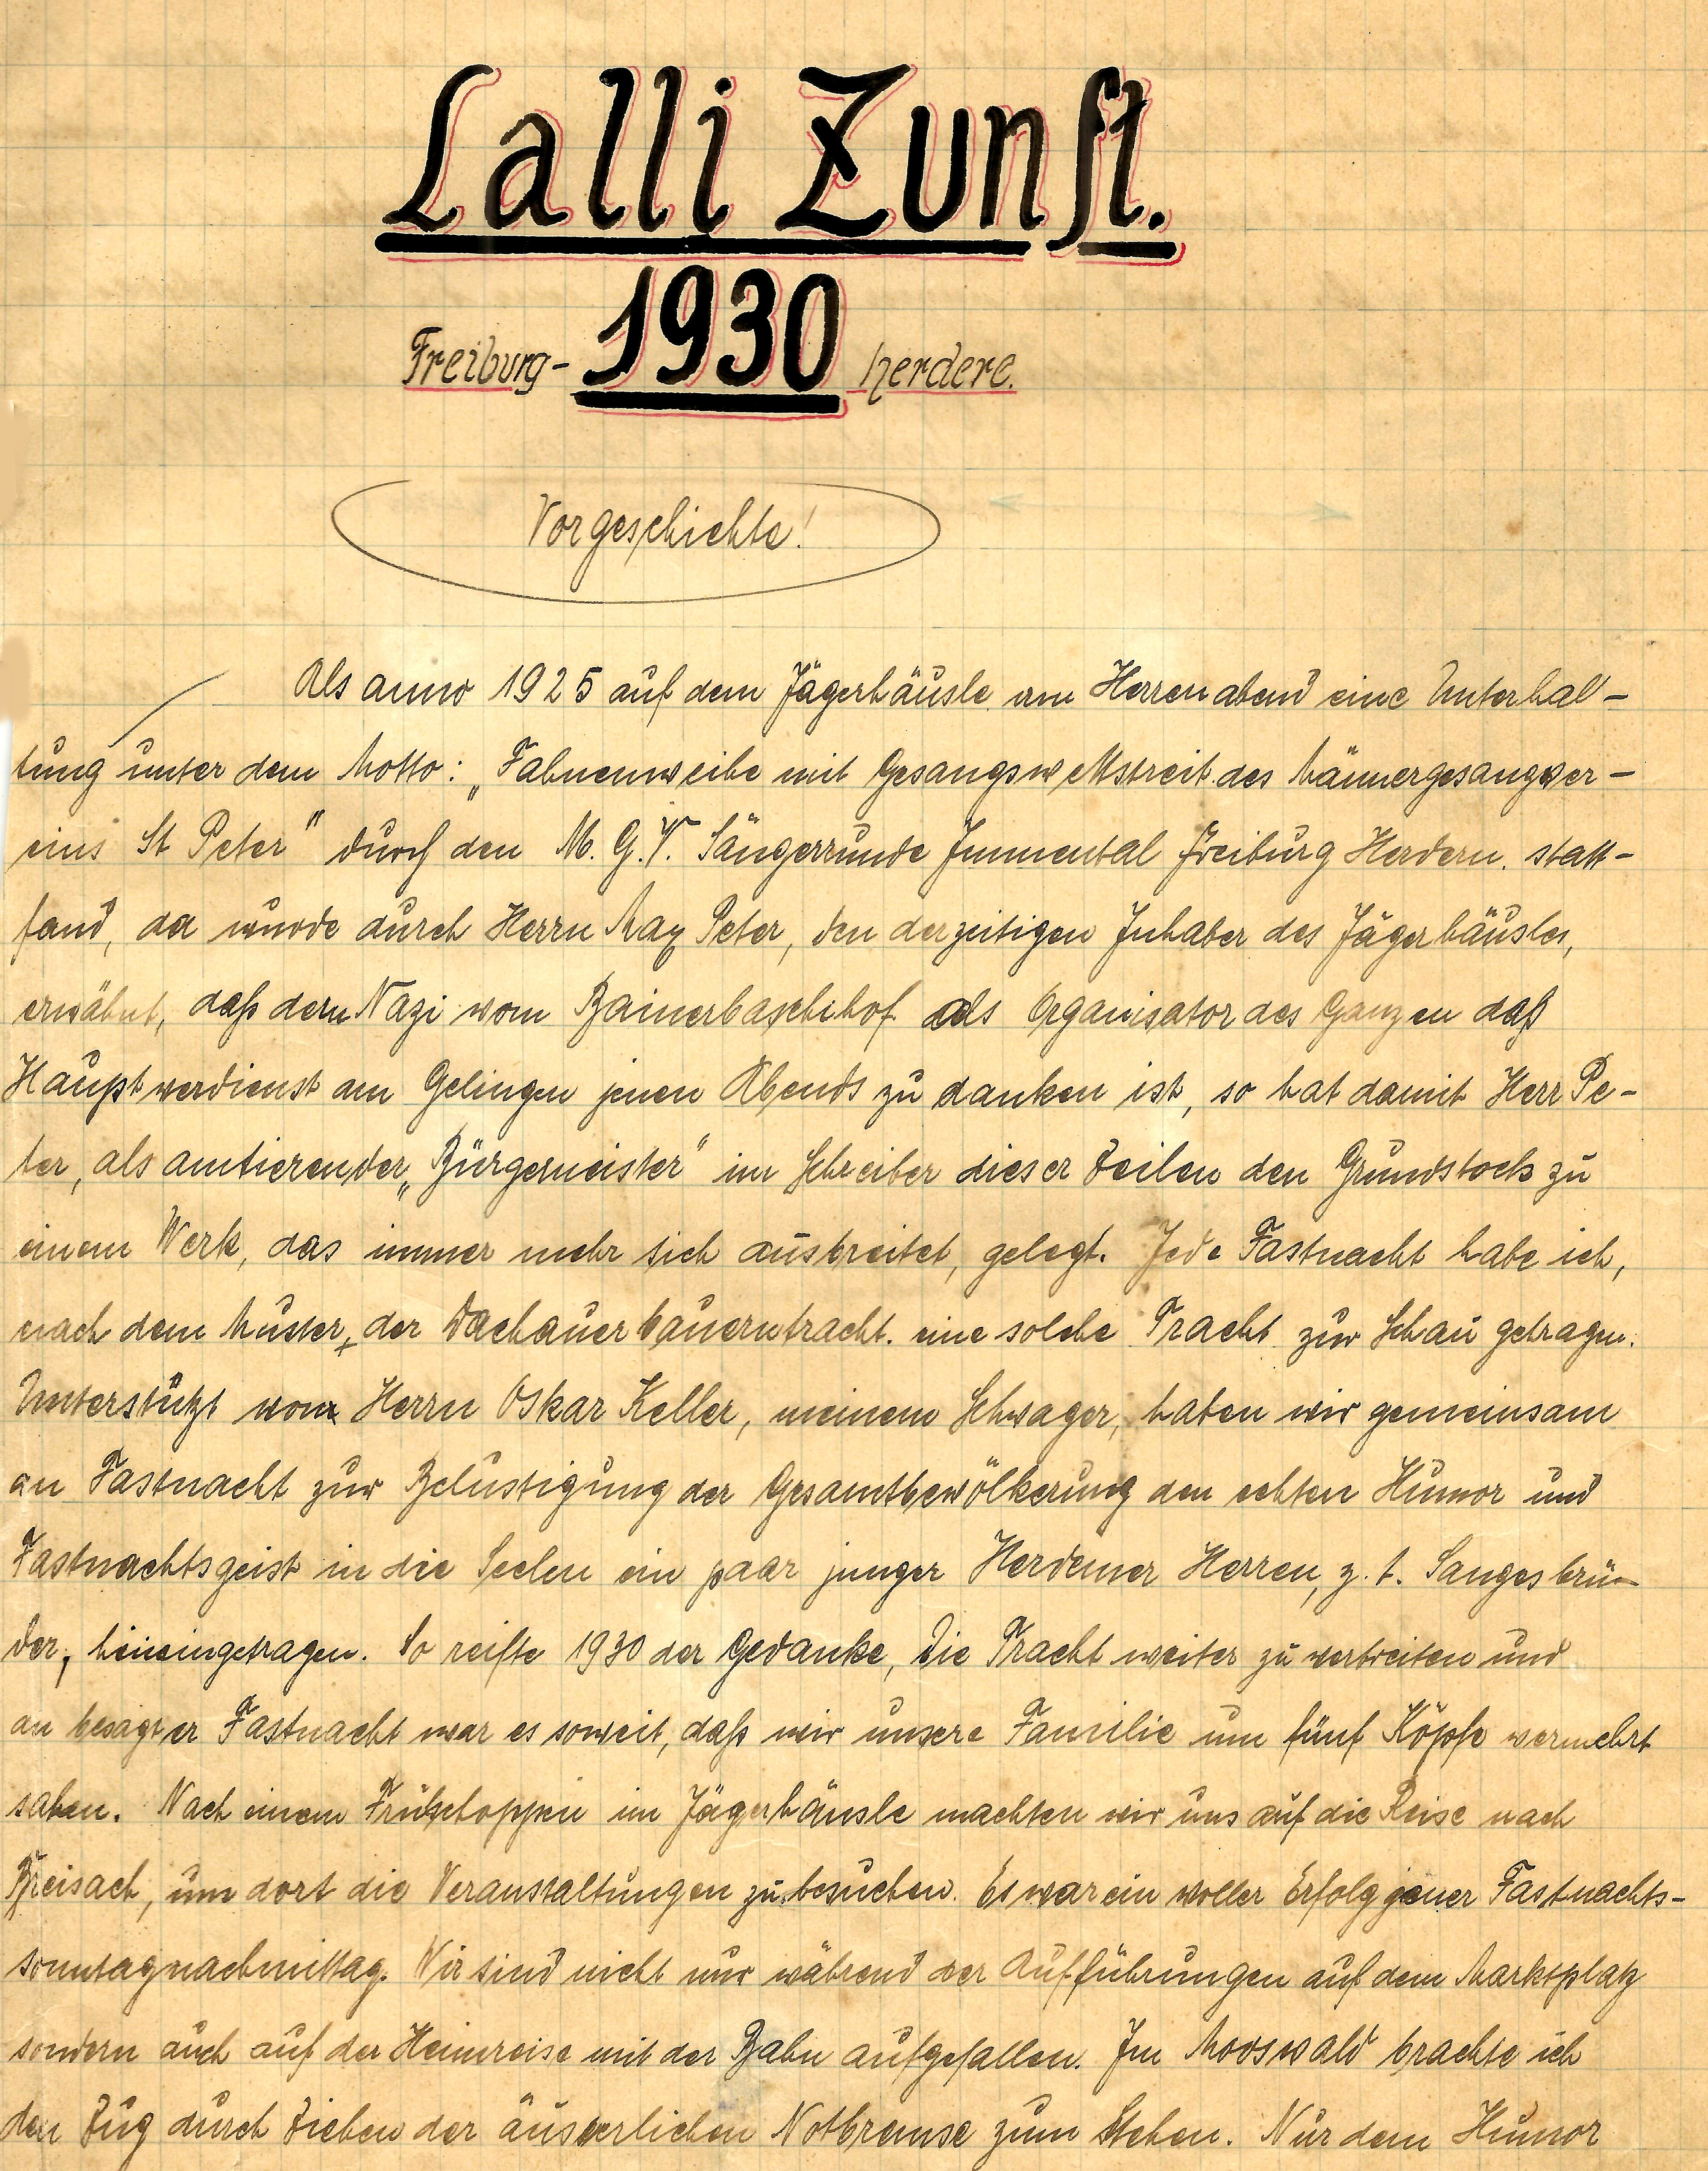 Lalli Zunft.
1930
Freiburg- Herdere.
Vorgeschichte!
Als anno 1925 auf dem Jägerhäusle am Herrenabend eine Unterhal-
tung unter dem Motto: „Fahnenweihe mit Gesangswettstreit des Männergesangver-
eins St Peter" durch den M. G. V. Sängerrunde Immental Freiburg Herdern. statt-
fand, da wurde durch Herrn Max Peter, den derzeitigen Inhaber des Jägerhäusles,
erwähnt, daß dem Nazi vom Bainerbaschihof als Organisator des Ganzen daß
Hauptverdienst am Gelingen jenen Abends zu danken ist, so hat damit Herr Pe-
ter, als amtierender „Bürgemeister" im Schreiber dieser Zeilen den Grundstock zu
einem Werk, das immer mehr sich ausbreitet, gelegt. Jede Fastnacht habe ich,
nach dem Muster, der Dachauer bauerntracht. eine solche Tracht zur Schau getragen.
Unterstützt von Herrn Oskar Keller, meinem Schwager, haben wir gemeinsam
an Fastnacht zur Belustigung der Gesamtbewölkerung den echten Humor und
Fastnachtsgeist in die Seelen ein paar junger Herdemer Herren, z. t. Sangesbrü-
der, hineingetragen. So reifte 1930 der Gedanke, die Tracht weiter zu verbreiten und
an besagter Fastnacht war es soweit, daß wir unsere Familie um fünf Köpfe vermehrt
sahen. Nach einem Frühschoppen im Jägerhäusle machten wir uns auf die Reise nach
Breisach, um dort die Veranstaltungen zu besuchen. Es war ein voller Erfolg jener Fastnachts-
sonntagnachmittag. Wir sind nicht nur während der Aufführungen auf dem Marktplatz
sondern auch auf der Heimreise mit der Bahn aufgefallen. Im Mooswald brachte ich
den Zug durch Ziehen der äuserlichen Notbremse zum Stehen. Nur dem Humor